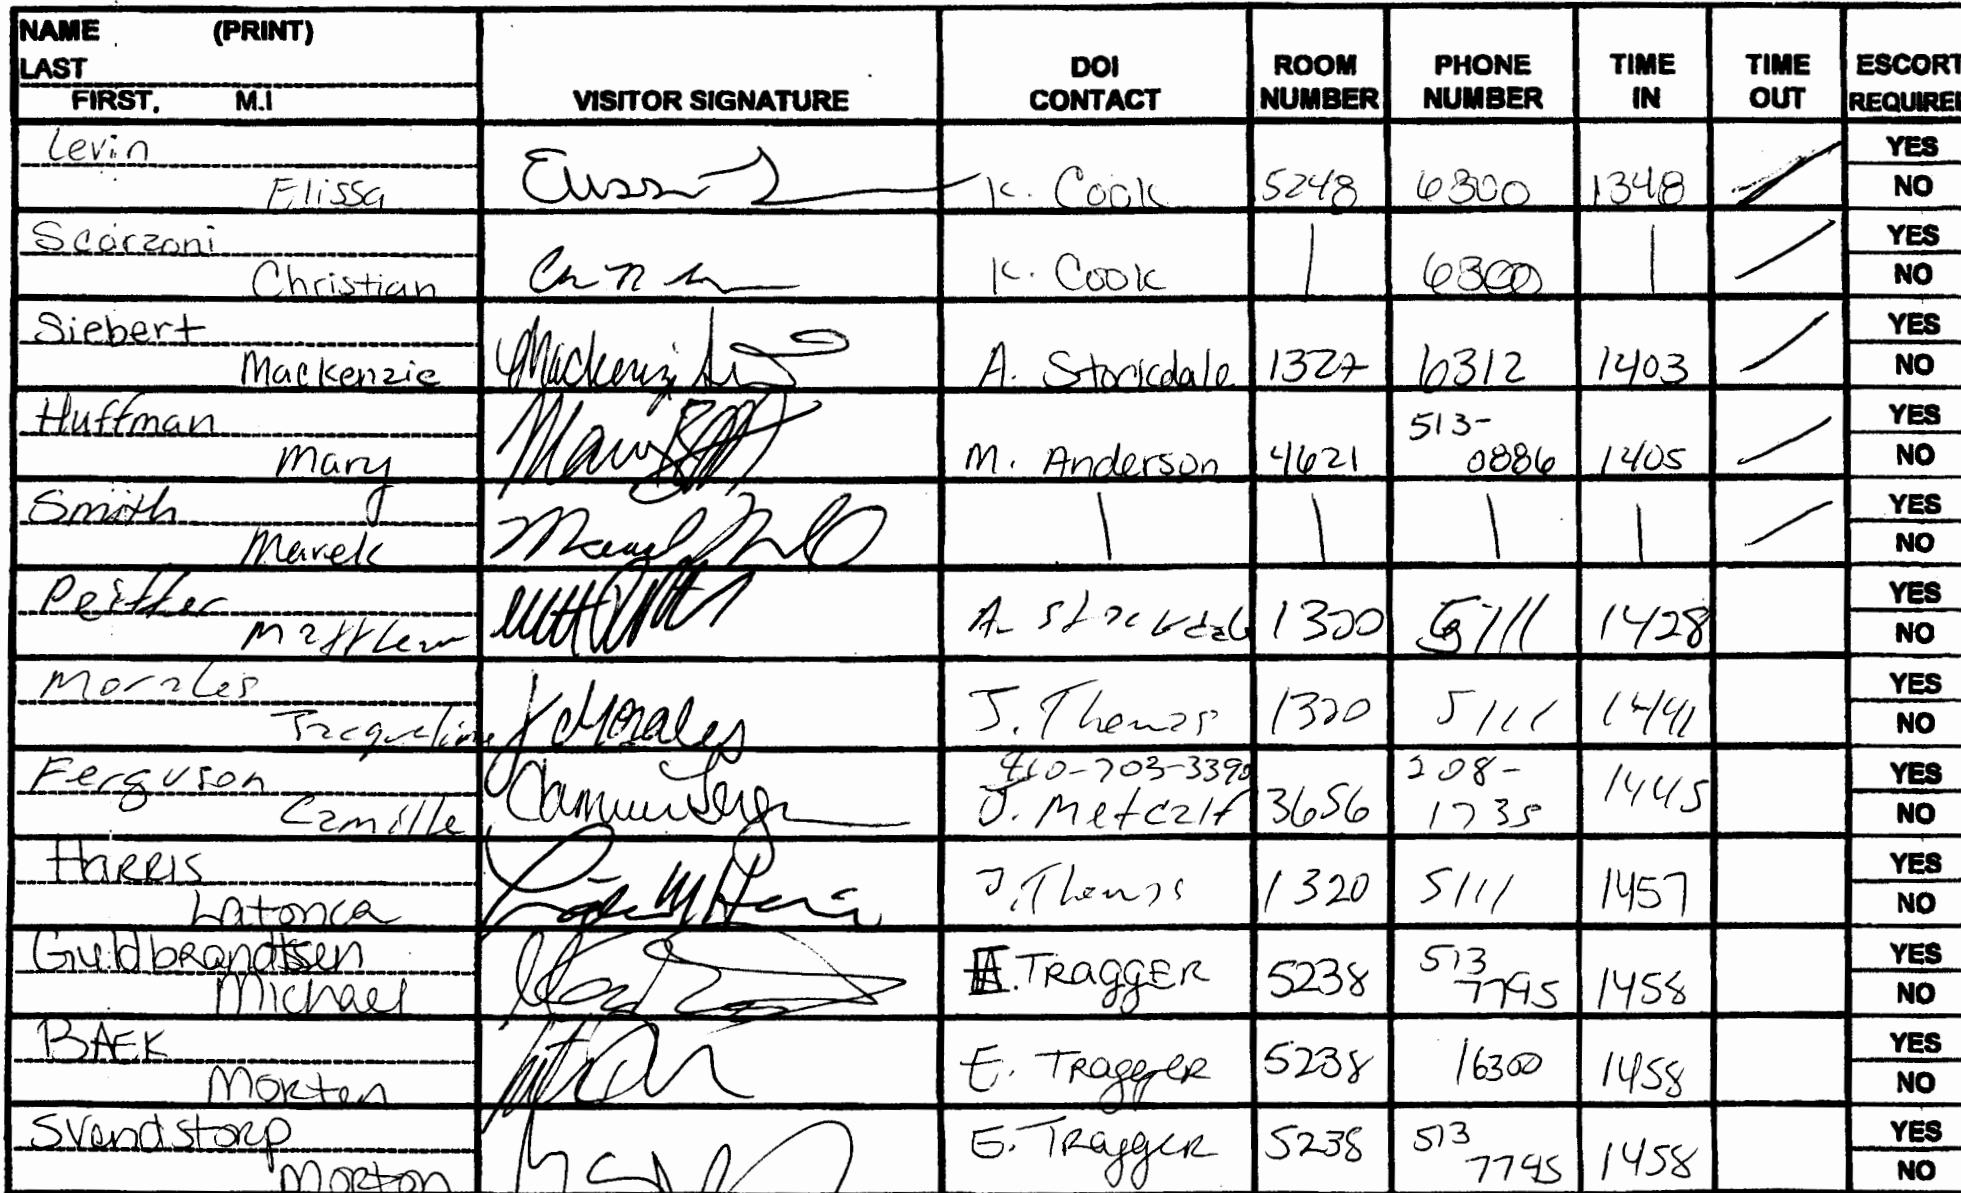 NAME (PRINT)
LAST
FIRST. M.I
VISITOR SIGNATURE
DOI CONTACT
ROOM NUMBER
PHONE NUMBER
TIME IN
TIME OUT
ESCORT REQUIRE
Levin
Elissa K. Cook 5248 6300 1348 YES NO
Scarzoni
Christian K. Cook 6300 YES NO
Siebert
Mackenzie A. Stockdale 1327 6312 1403 YES NO
Huffman 513-
Mary M. Anderson 4621 0886 1405 YES NO
Smith
Marek YES NO
Peiffer
Matthew A. Stockdale 1320 5111 1428 YES NO
Morales
Jacqueline J Morales J. Thomas 1320 5111 1441 YES NO
Ferguson 410-703-3390 208-
Camille J. Metcalf 3656 1735 1445 YES NO
HARRIS
Latonca J. Thomas 1320 5111 1457 YES NO
Guldbrandtsen 513
Michael TRAGGER 5238 7795 1458 YES NO
BAEK
Morten E. TRAGGER 5238 6300 1458 YES NO
Svendstorp 513
Morton E. TRAGGER 5238 7795 1458 YES NO